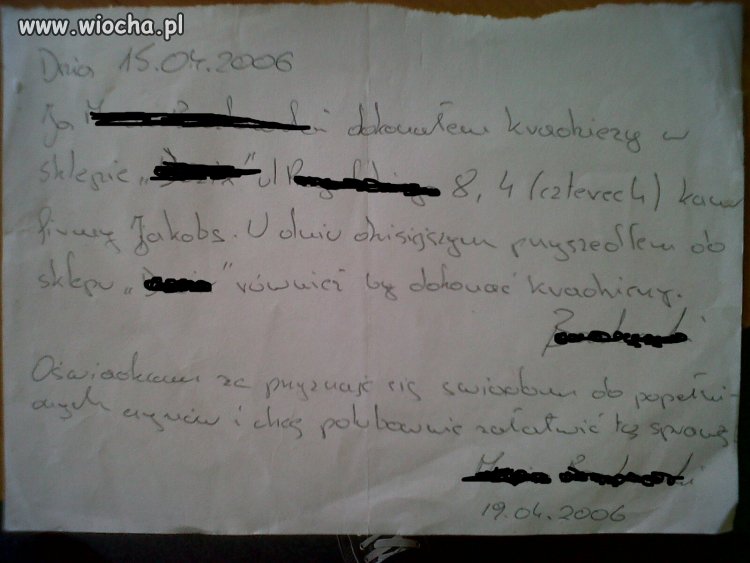 www.wiocha.pl
Dnia 15.04.2006
Ja dokonałem kradzieży w
sklepie „ " ul 8, 4 (czterech) kaw
firmy Jakobs. W dniu dzisiejszym przyszedłem do
sklepu „ " również by dokonać kradzieży.
Oświadczam że przyznaję się do popełni-
onych czynów i chcę polubownie załatwić tą sprawę
19.04.2006